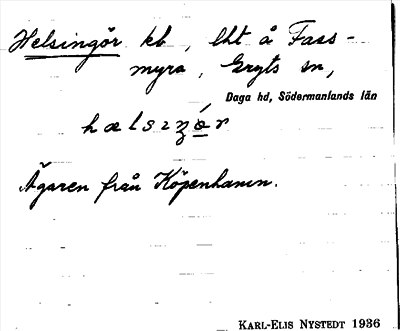 Helsingör kb, lht å Fass-
myra, Gryts sn,
Daga hd, Södermanlands län
Ägaren från Köpenhamn.
KARL-ELIS NYSTEDT 1936